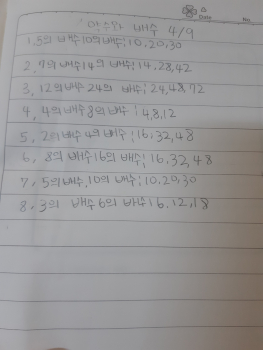 Date No
약수와 배수 4/9
1, 5의 배수 10의 배수; 10, 20, 30
2, 7의 배수 14의 배수; 14, 28, 42
3, 12의 배수 24의 배수; 24, 48, 72
4, 4의 배수 8의 배수; 4, 8, 12
5, 2의 배수 4의 배수; 16, 32, 48
6, 8의 배수 16의 배수; 16, 32, 48
7, 5의 배수, 10의 배수; 10, 20, 30
8, 3의 배수 6의 배수; 6, 12, 18